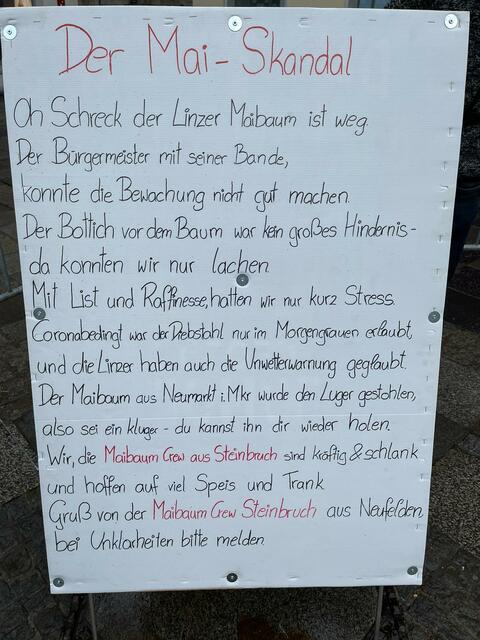 Der Mai-Skandal
Oh Schreck der Linzer Maibaum ist weg.
Der Bürgermeister mit seiner Bande,
konnte die Bewachung nicht gut machen.
Der Bottich vor dem Baum war kein großes Hindernis-
da konnten wir nur lachen.
Mit List und Raffinesse, hatten wir nur kurz Stress.
Coronabedingt war der Diebstahl nur im Morgengrauen erlaubt,
und die Linzer haben auch die Unwetterwarnung geglaubt.
Der Maibaum aus Neumarkt i. Mkr wurde den Luger gestohlen,
also sei ein kluger - du kannst ihn dir wieder holen.
Wir, die Maibaum Crew aus Steinbruch sind kräftig & schlank
und hoffen auf viel Speis und Trank
Gruß von der Maibaum Crew Steinbruch aus Neufelden
bei Unklarheiten bitte melden